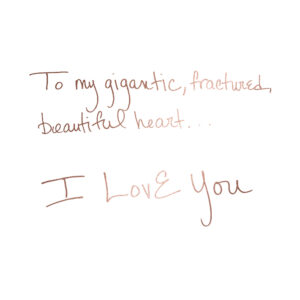 To my gigantic, fractured,
beautiful heart...
I LovE You